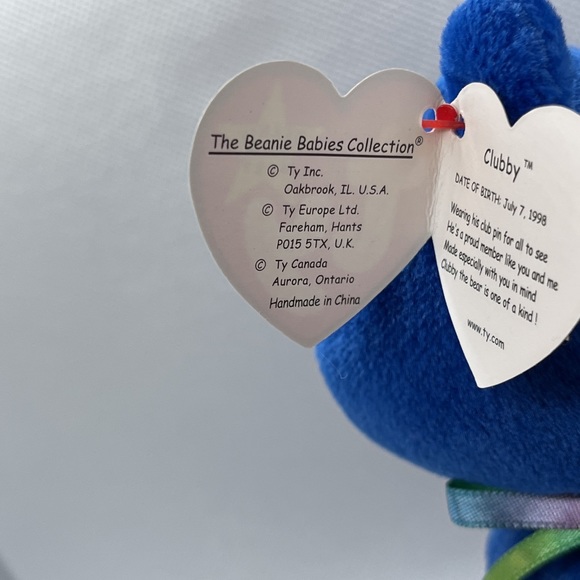 The Beanie Babies Collection®
© Ty Inc.
Oakbrook, IL. U.S.A.
© Ty Europe Ltd.
Fareham, Hants
PO15 5TX, U.K.
© Ty Canada
Aurora, Ontario
Handmade in China
Clubby ™
DATE OF BIRTH: July 7, 1998
Wearing his club pin for all to see
He's a proud member like you and me
Made especially with you in mind
Clubby the bear is one of a kind !
www.ty.com